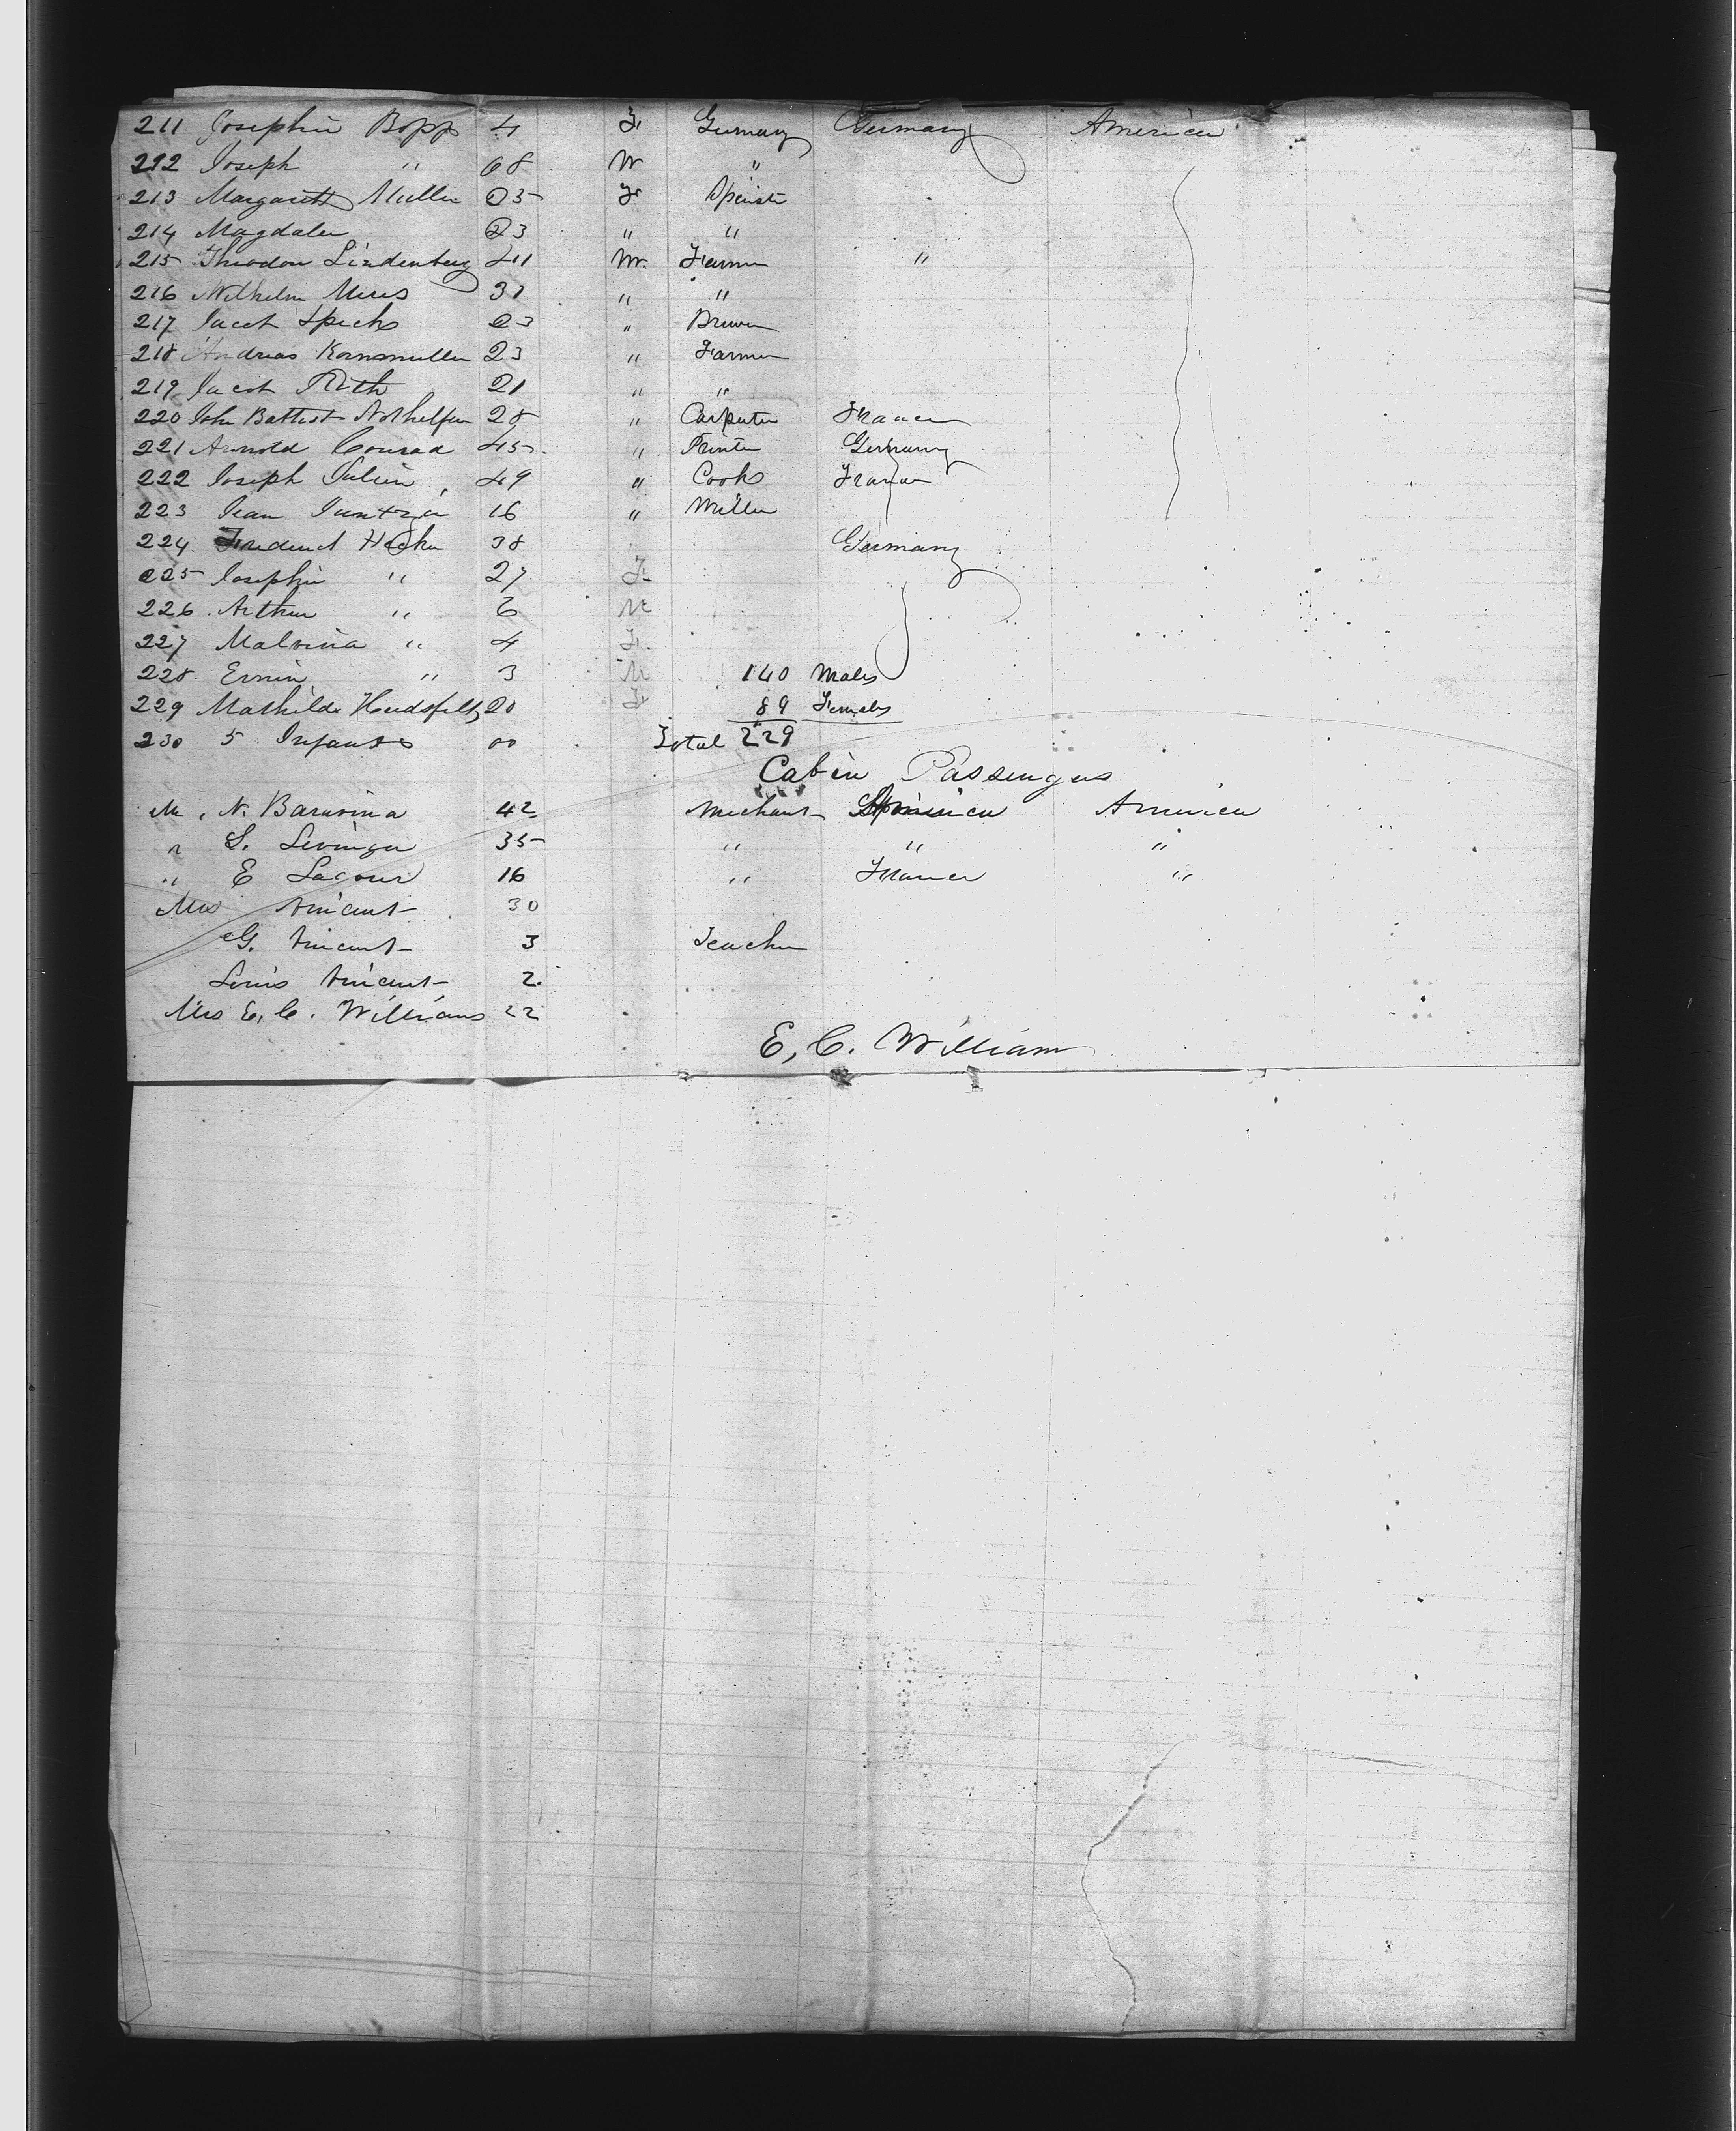 211 Josephin Bopp 4 F Germany Germany America
212 Joseph " 68 M "
213 Margareth Muller 25 F Spinste
214 Magdalen 23 " "
215 Theodor Lindenberg 41 M. Farmer "
216 Wilhelm Mees 31 " "
217 Jacob Specks 23 " Brewer
218 Andreas Kornmuller 23 " Farmer
219 Jacob Rith 21 " "
220 John Battist Nothelfer 28 " Carpenter France
221 Arnold Conrad 45 " Printer Germany
222 Joseph Julien 49 " Cook France
223 Jean 16 " Miller
224 Frederick Hecker 38 Germany
225 Josephin " 27 F
226 Arthur " 6 M
227 Malvina " 4 F.
228 Ernin " 3 M 140 Males
229 Mathilde 20 F 89 Females
230 5 Infants 00 Total 229
Cabin Passengers
M. N. Baravina 42 Merchant America
" S. Levinger 35 " " "
" E Lacour 16 " France "
Mrs Vincent 30
G. Vincent 3 Teacher
Louis Vincent 2.
Mrs E. C. Williams 22
E, C. William